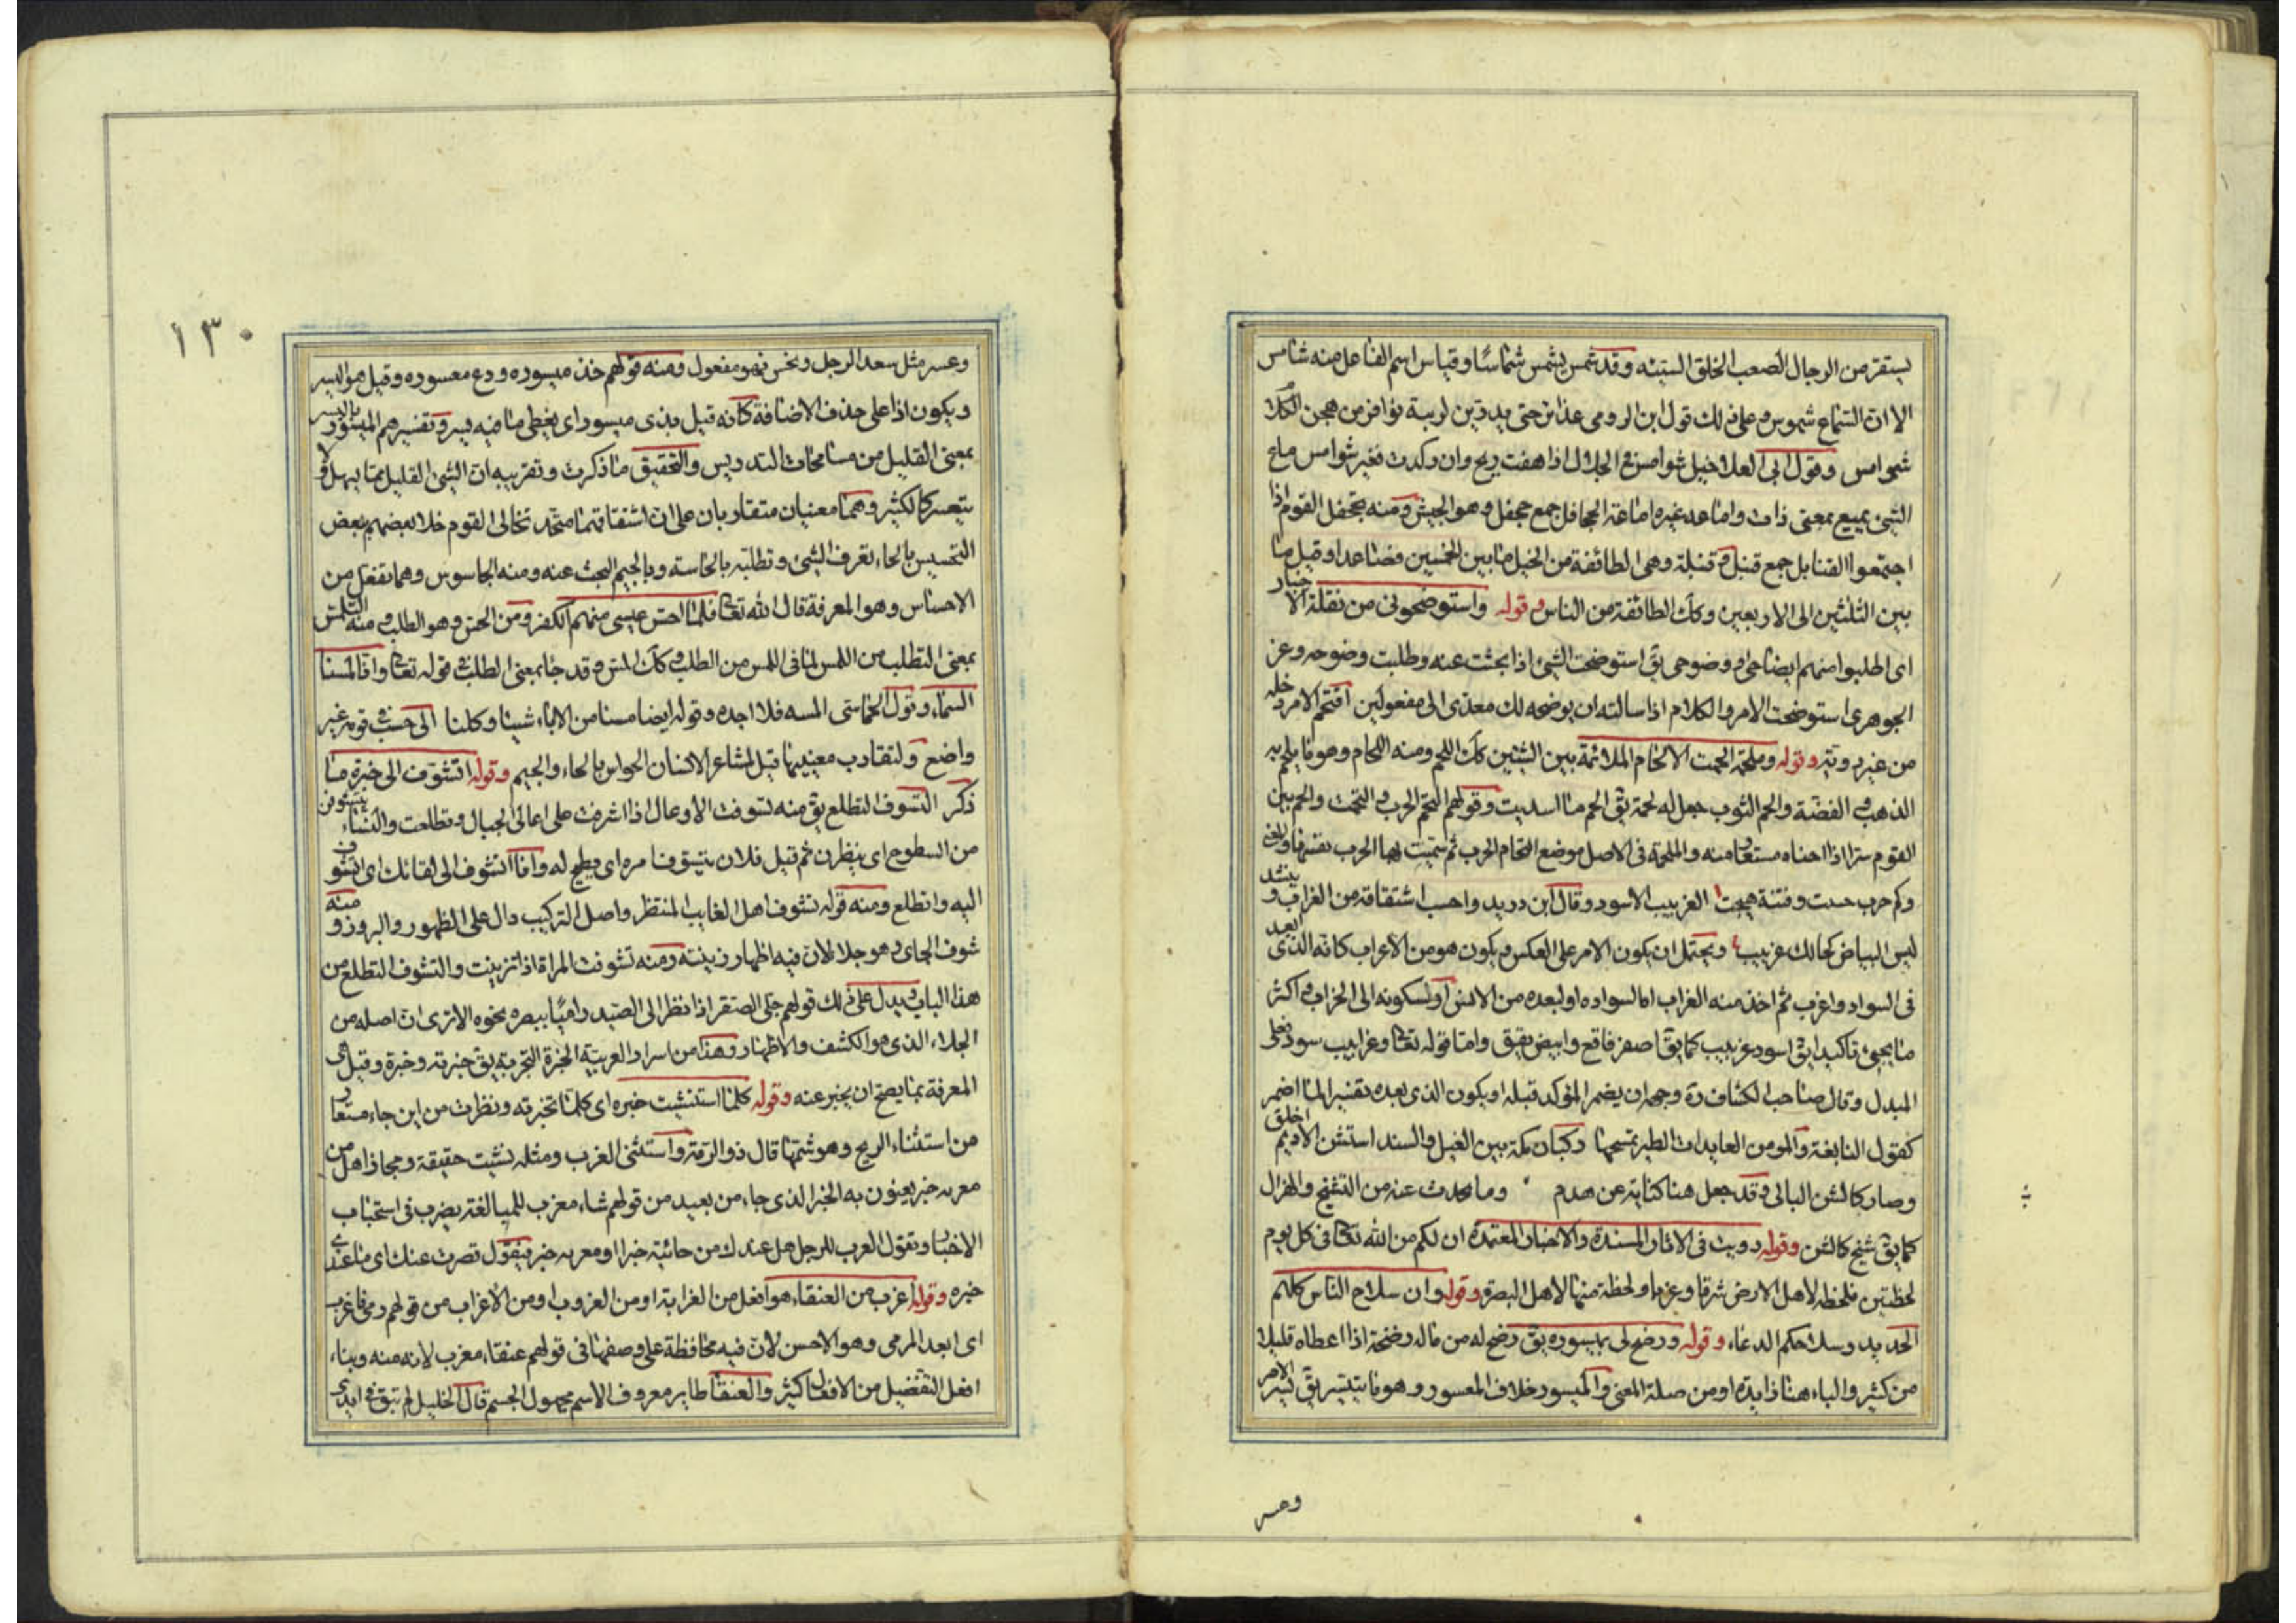 يستقر من الرجال الصعب الخلق السيئه وقد شمس يشمس شماسا وقياس اسم الفاعل منه شامس
الا ان السماع شموس وعلى ذلك قول ابن الرومى حتى يدين لريبة نوافر من هجن
شوامس وقول ابى العلا خيل شوامس فى الجلال اذا هفت ريح وان ركدت فغير شوامس ماع
الشئ يميع بمعنى ذاب واماعه غيره اماعة الجحافل جمع جحفل وهو الجيش ومنه تجحفل القوم اذا
اجتمعوا القنابل جمع قنبل وقنبلة وهى الطائفة من الخيل ما بين الخمسين فصاعدا وقيل ما
بين الثلثين الى الاربعين وكك الطائفة من الناس وقوله واستوضحونى من نقلة الاخبار
اى اطلبوا منهم ايضاحى ووضوحى يق استوضحت الشئ اذا بحثت عنه وطلبت وضوحه وعن
الجوهرى استوضحت الامر والكلام اذا سالته ان يوضحه لك معدى الى مفعولين اقتحم الامر دخله
من غير روية وقوله وملحمة الجمت الالتحام الملائمة بين الشيئين كك اللحم ومنه اللحام وهو ما يلحم به
الذهب والفضة والحم الثوب جعل له لحمة يق الحم ما اسديت وقولهم التحم الحرب والتحمت والحم بين
القوم شرا اذا جناه مستعار منه والملحمة فى الاصل موضع التحام الحرب ثم سميت بها الحرب نفسها والفتنة
وكم حرب حدت وفتنة هيجت الغربيب الاسود وقال ابن دريد واحسب اشتقاقه من الغراب وينشد
ليس البياض كحالك غربيب ويحتمل ان يكون الامر على العكس ويكون هو من الاغراب كانه الذى ابعد
فى السواد واغرب ثم اخذ منه الغراب اما لسواده او لبعده من الانس او لسكونه الى الخراب واكثر
ما يجئ تاكيدا يق اسود غربيب كما يق اصفر فاقع وابيض يقق واما قوله تعالى وغرابيب سود فعلى
المبدل وقال صاحب الكشاف وجهه ان يضمر المؤكد قبله ويكون الذى بعده تفسيرا لما اضمر
كقول النابغة والمومن العايذات الطير تمسحها وكبان مكة بين الغيل والسند استشن الاديم اخلق
وصار كالشن البالى وقد جعل هنا كناية عن هدم وما يحدث عنه من التشنج والهزال
كما يق شيخ كالشن وقوله رويت فى الاثار المسندة والاخبار المعتمدة ان لكم من الله تعالى فى كل يوم
لحظتين فلحظة لاهل الارض شرقا وغربا ولحظة منها لاهل البصرة وقوله وان سلاح الناس كلهم
الحديد وسلاحكم الدعاء وقوله ورضخ لى بميسوره يق رضخ له من ماله رضخة اذا اعطاه قليلا
من كثير والباء هنا زايدة او من صلة المعنى والميسور خلاف المعسور وهو ما يتيسر يق يسر الامر
وعسر
١٣٠
وعسر مثل سعد الرجل ونحس فهو مفعول ومنه قولهم خذ ميسوره ودع معسوره وقيل هو اليسر
ويكون اذا على حذف الاضافة كانه قيل بذى ميسور اى يعطى ما فيه يسر وتفسيرهم الميسور باليسير
بمعنى القليل من مسامحات التدريس والتحقيق ما ذكرت وتقريبه ان الشئ القليل مما يسهل ولا
يتعسر كالكثير وهما معنيان متقاربان على ان اشتقاقهما متحد تخالى القوم خلا بعضهم ببعض
التحسس بالحاء تعرف الشئ وتطلبه بالحاسة وبالجيم البحث عنه ومنه الجاسوس وهما تفعل من
الاحساس وهو المعرفة قال الله تعالى فلما احس عيسى منهم الكفر ومن الجس وهو الطلب ومنه التلمس
بمعنى التطلب من اللمس لما فى اللمس من الطلب وكك المس وقد جا بمعنى الطلب فى قوله تعالى وانا لمسنا
السماء وقول الحماسى المسه فلا اجده وقوله ايضا مسنا من الاباء شيئا وكلنا الى حسب فى قومه غير
واضع ولتقارب معنييهما قيل لمشاعر الانسان الحواس بالحاء والجيم وقوله اتشوف الى خبرة ما
ذكر التشوف التطلع يق منه تشوفت الاوعال اذا اشرفت على اعالى الجبال وتطلعت والنساء يتشوفن
من السطوح اى ينظرن ثم قيل فلان يتشوف امره اى يطمح له وانا اتشوف الى لقائك اى اتشوف
اليه واتطلع ومنه قوله تشوف اهل الغايب المنتظر واصل التركيب دال على الظهور والبروز ومنه
شوف الحلى وهو جلاء لان فيه اظهار زينته ومنه تشوفت المراة اذا تزينت والتشوف التطلع من
هذا الباب ويدل على ذلك قولهم جلى الصقر اذا نظر الى الصيد راميا ببصره نحوه الا ترى ان اصله من
الجلاء الذى هو الكشف والاظهار وهذا من اسرار العربية الخبرة التجربة يق خبرته وخبرة وقيل هى
المعرفة بما يصح ان يخبر عنه وقوله كلما استنشيت خبره اى كلما تخبرته ونظرت من اين جاء مستعار
من استنشاء الريح وهو شمها قال ذو الرمة واستنشى الغرب ومثله نشيت حقيقة ومجازا هل من
مغربه خبر يعنون به الخبر الذى جاء من بعيد من قولهم شاء مغرب للمبالغة يضرب فى استخبار
الاخبار وتقول العرب للرجل هل عندك من جائبة خبر او مغربه خبر فيقول قصرت عنك اى ما عندى
خبره وقوله اغرب من العنقاء هو افعل من الغرابة او من الغروب او من الاغراب من قولهم رمى فاغرب
اى ابعد المرمى وهو الاحسن لان فيه محافظة على وصفها فى قولهم عنقاء مغرب لانه منه وبناء
افعل التفضيل من الافعال كثير والعنقا طاير معروف الاسم مجهول الجسم قال الخليل لم تبق فى ايدى